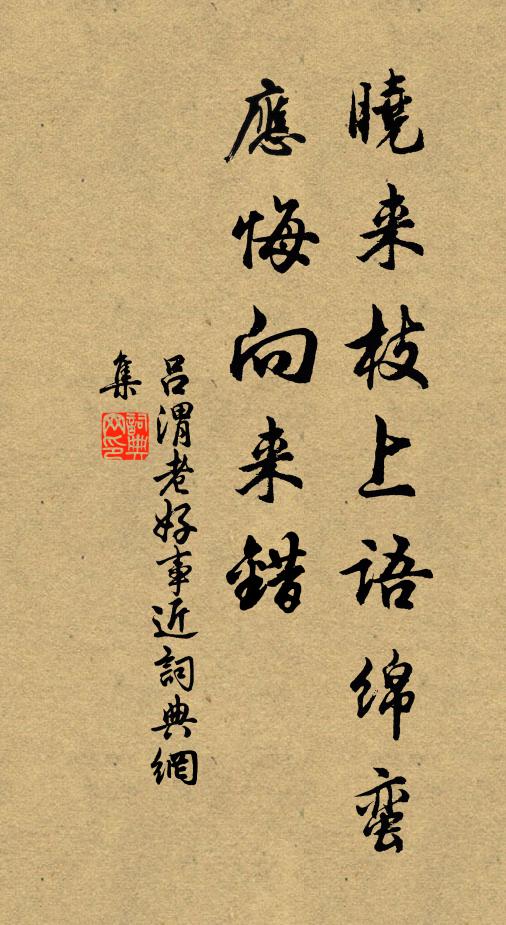 曉来枝上語綿蛮
應悔向来錯
吕渭老好事近詞典網
集
詞典網印